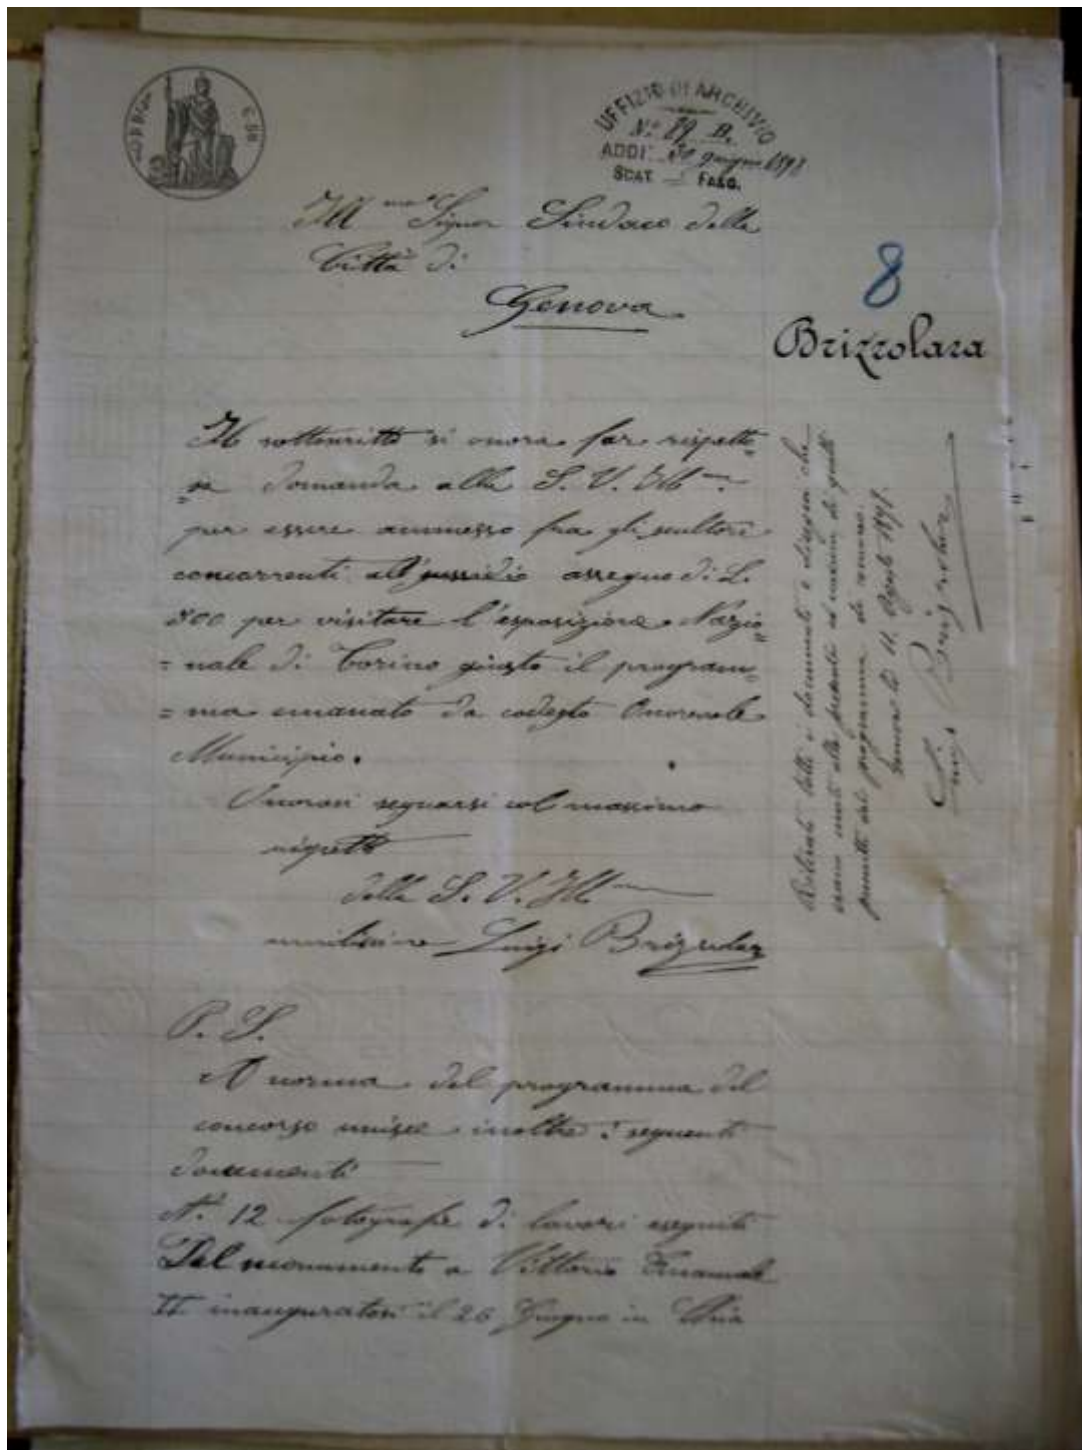 UFFIZIO DI ARCHIVIO
N.° 79 B.
ADDI 30 giugno 1898
SCAT. FASC.
Ill.mo Signor Sindaco della
Città di
Genova
8
Brizzolara
Il sottoscritto si onora far rispetto
=sa domanda alla S. V. Ill.ma
per essere ammesso fra gli scultori
concorrenti all'sussidio assegno di L.
300 per visitare l'esposizione Nazio
=nale di Torino giusto il program=
=ma emanato da codesto Onorevole
Municipio.
Onorasi segnarsi col massimo
rispetto
della S. V. Ill.ma
umilissimo Luigi Brizzolara
P. S.
A norma del programma del
concorso unisce inoltre i seguenti
documenti
N.° 12 fotografie di lavori eseguiti
Del monumento a Vittorio Emanuele
II inauguratosi il 26 Giugno in
Ritirati tutti i documenti e disegni che
erano uniti alla presente ad di quelli
dal programma di concorso.
Genova lì 11. Agosto 1898.
Luigi Brizzolara